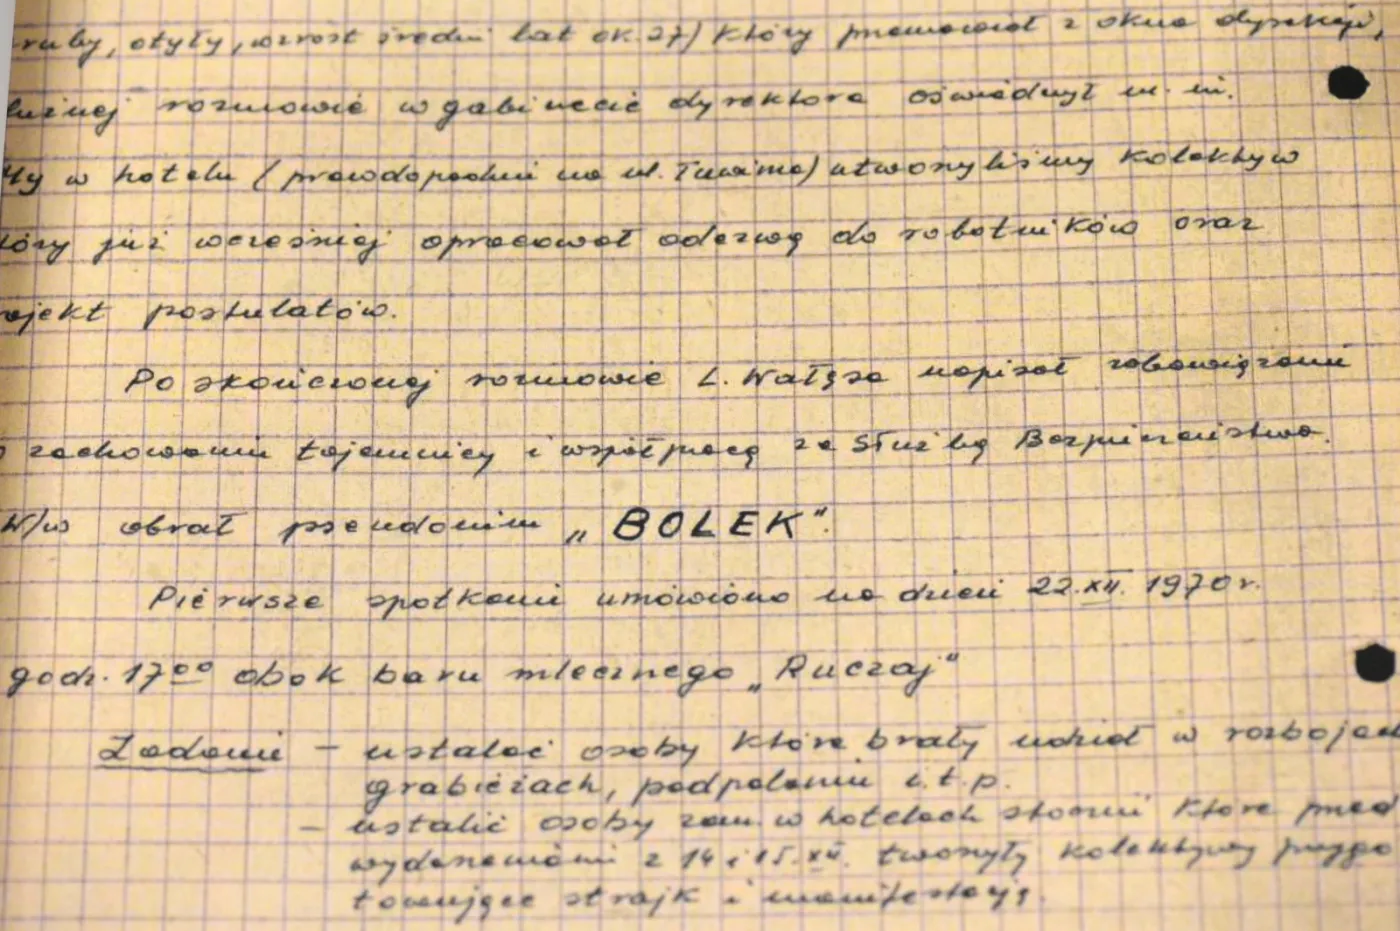 ruby, otyły, wzrost średni lat ok. 27) który przemawiał z okna dyrekcji,
luźnej rozmowie w gabinecie dyrektora oświadczył m. in.
w hotelu (prawdopodobnie na ul. Tuwima) utworzyliśmy kolektyw
tóry już wcześniej opracował odezwę do robotników oraz
ojekt postulatów.
Po skończonej rozmowie L. Wałęsa napisał zobowiązanie
o zachowaniu tajemnicy i współpracy ze Służbą Bezpieczeństwa.
W/w obrał pseudonim „BOLEK".
Pierwsze spotkanie umówiono na dzień 22.XII. 1970 r.
godz. 17⁰⁰ obok baru mlecznego „Ruczaj"
Zadanie – ustalać osoby które brały udział w rozbojach
grabieżach, podpaleniu i.t.p.
– ustalić osoby zam. w hotelach stoczni które przed
wydarzeniami z 14 i 15.XII. tworzyły kolektywy przygo
towujące strajk i manifestację.